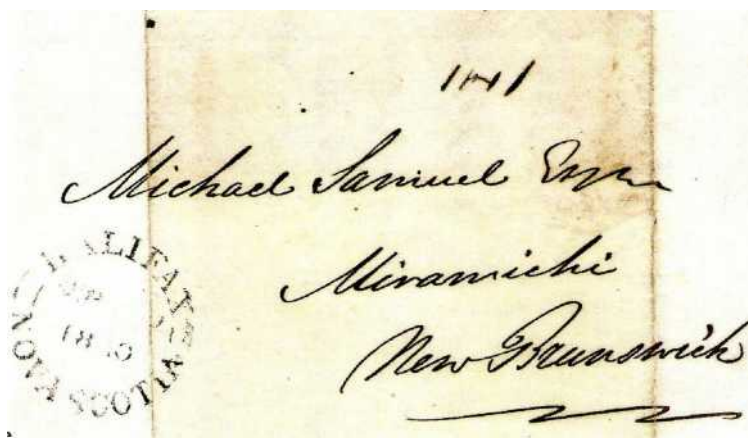 Michael Samuel Esqr
Miramichi
New Brunswick
HALIFAX
NOVA SCOTIA